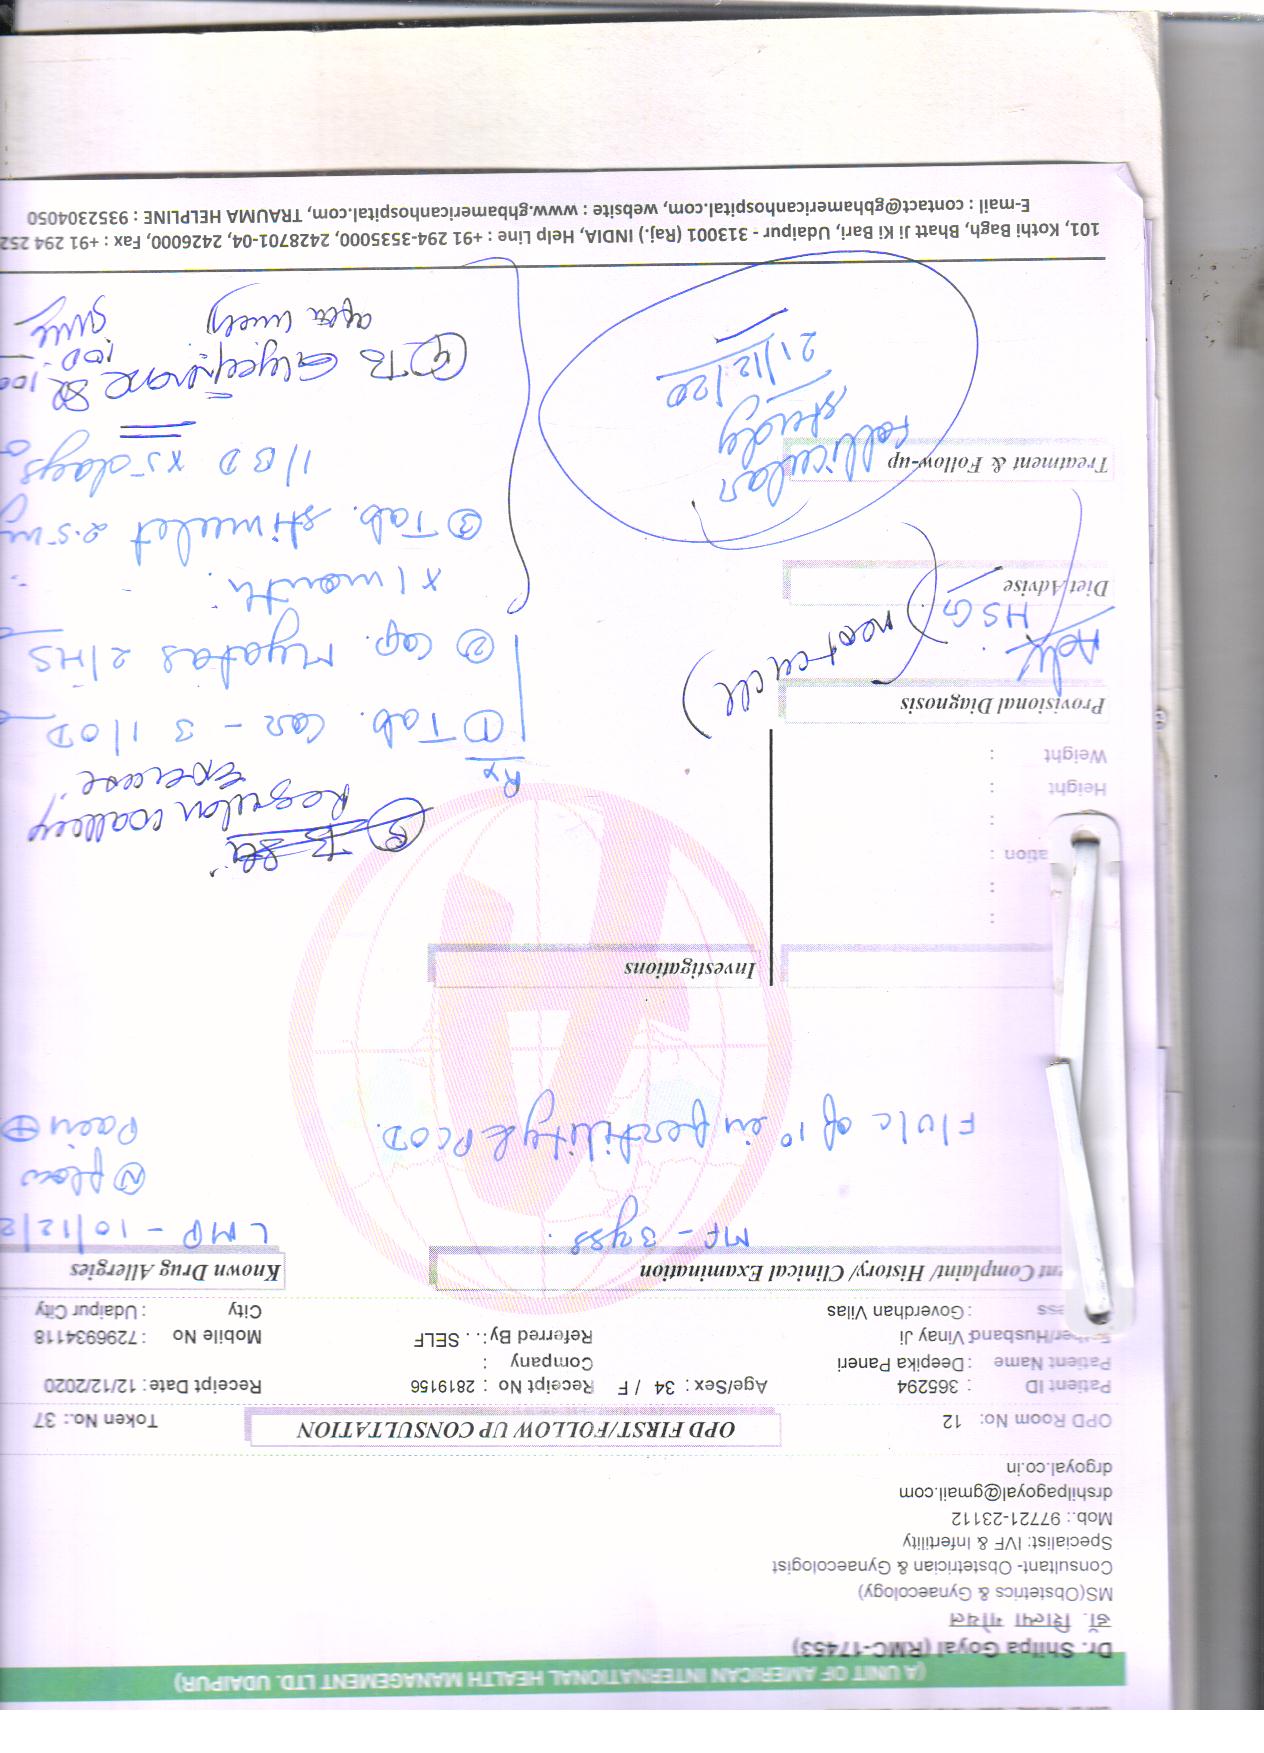 (A UNIT OF AMERICAN INTERNATIONAL HEALTH MANAGEMENT LTD. UDAIPUR)
Dr. Shilpa Goyal (RMC-17453)
डॉ. शिल्पा गोयल
MS(Obstetrics & Gynaecology)
Consultant- Obstetrician & Gynaecologist
Specialist: IVF & Infertility
Mob.: 97721-23112
drshilpagoyal@gmail.com
drgoyal.co.in
OPD Room No: 12 OPD FIRST/FOLLOW UP CONSULTATION Token No.: 37
Patient ID : 365294 Age/Sex : 34 / F Receipt No : 2819156 Receipt Date : 12/12/2020
Patient Name : Deepika Paneri Company :
Father/Husband Vinay Ji Referred By : . . SELF Mobile No : 7296934118
ess : Goverdhan Vilas City : Udaipur City
nt Complaint/ History/ Clinical Examination Known Drug Allergies
MF - 3 yrs. LMP - 10/12/2
N flow
F/U/C of 1° infertility & PCOD. Pain +
Investigations
:
:
ation :
:
Height :
Weight :
Regular walking
Exercise
Provisional Diagnosis
Adv.
HSG
(next cycle)
Diet Advise
Treatment & Follow-up
Follicular
study
21/12/20
Rx
① Tab. Cor - 3 1/OD
② Cap. Myotas 2/HS
x 1 month.
③ Tab. stimulet 2.5 mg
1/BD x 5 days
④ Tb Glyciphage SR
after
101, Kothi Bagh, Bhatt Ji Ki Bari, Udaipur - 313001 (Raj.) INDIA, Help Line : +91 294-3535000, 2428701-04, 2426000, Fax : +91 294 252
E-mail : contact@gbhamericanhospital.com, website : www.gbhamericanhospital.com, TRAUMA HELPLINE : 9352304050